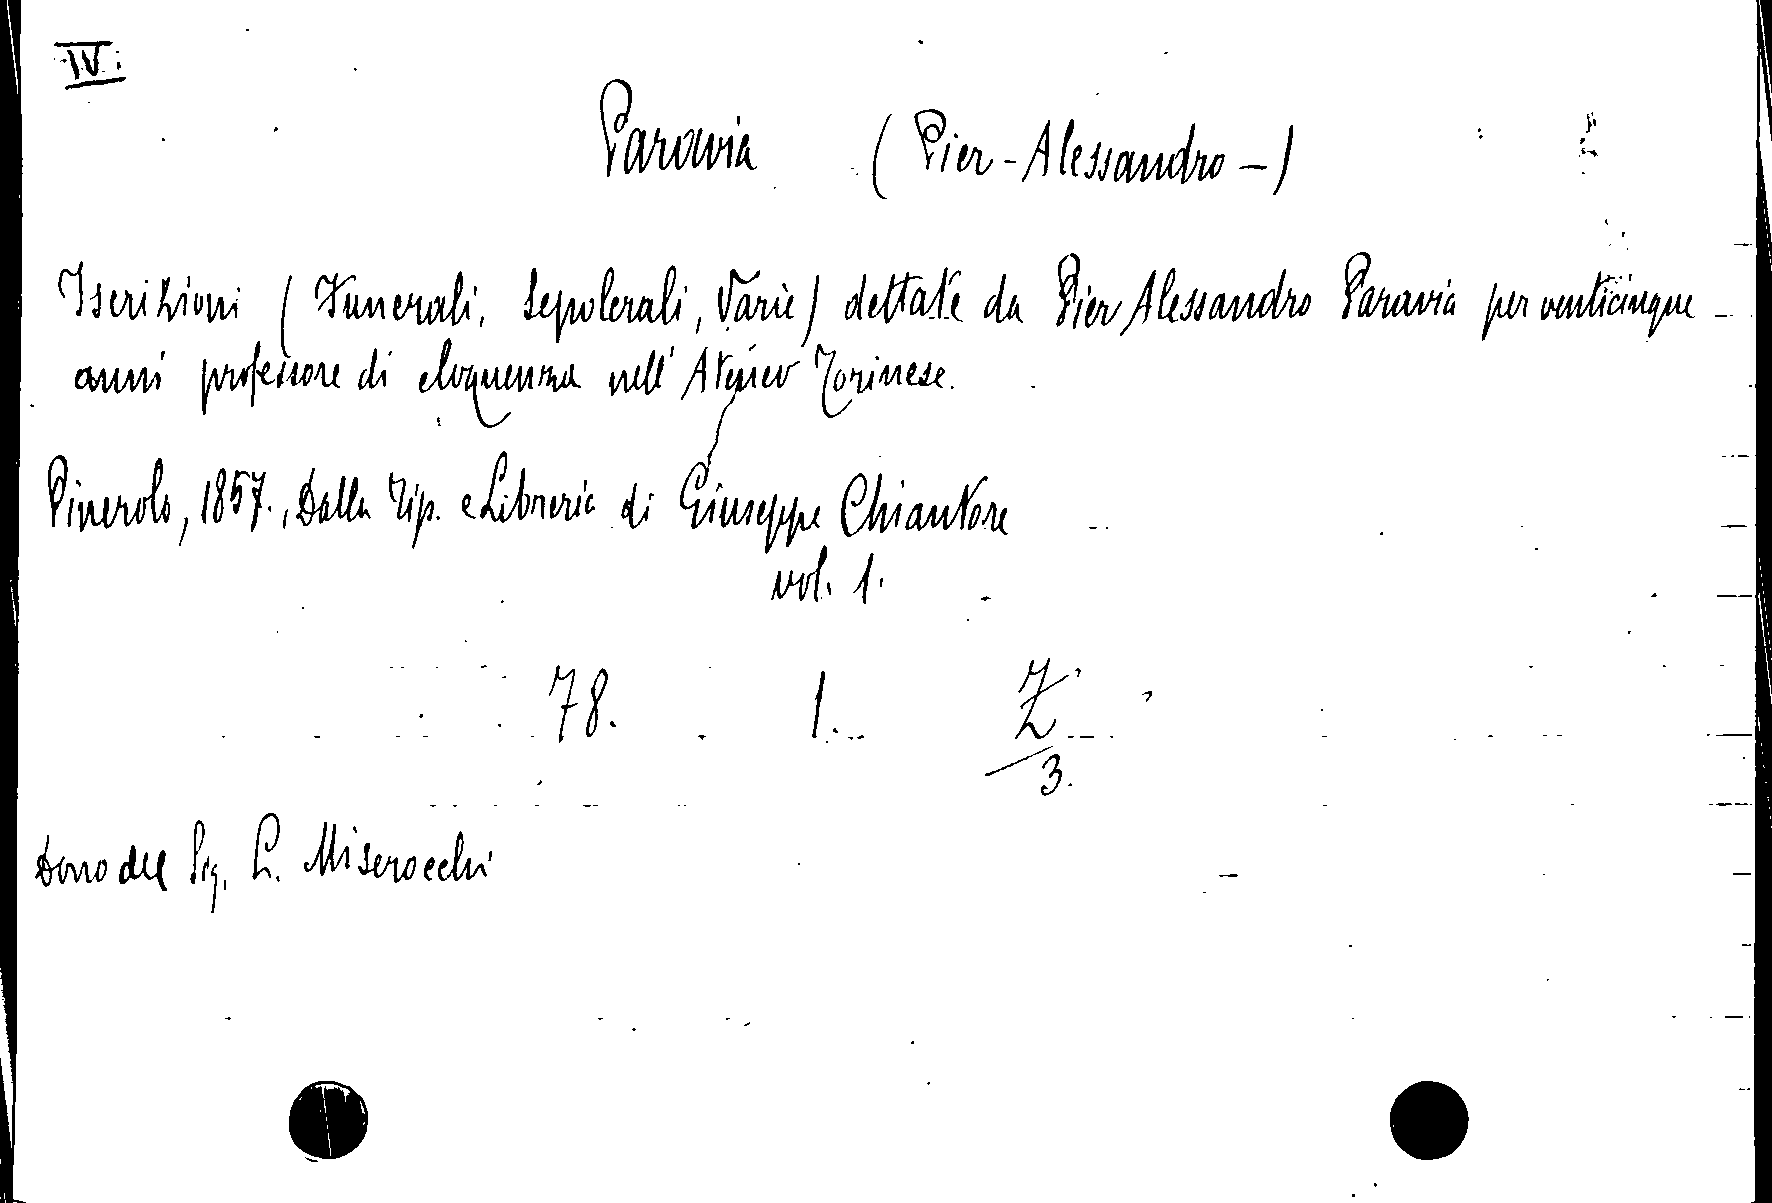 IV.
Paravia (Pier-Alessandro-)
Iscrizioni (Funerali, Sepolcrali, Varie) dettate da Pier Alessandro Paravia per venticinque
anni professore di eloquenza nell'Ateneo Torinese.
Pinerolo, 1857., Dalla Tip. e Libreria di Giuseppe Chiantore
vol. 1.
78. 1. Z
3.
Dono del Sig. L. Miserocchi